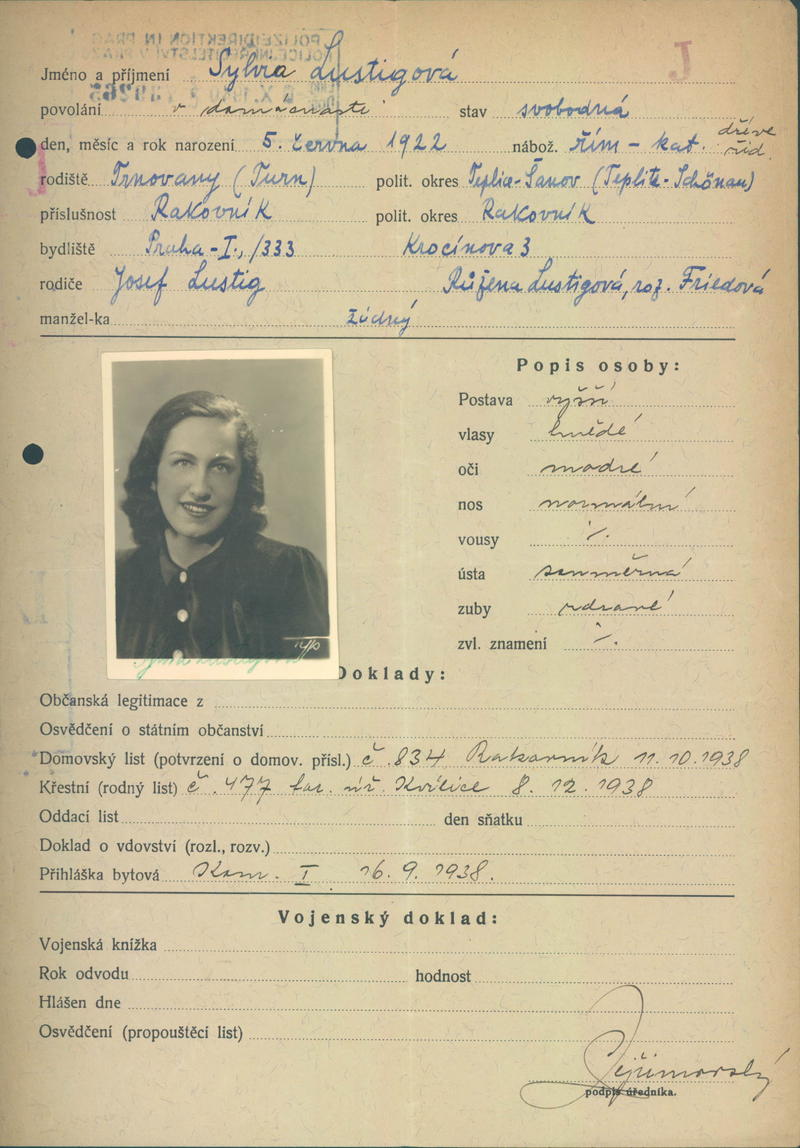 POLIZEIDIREKTION IN PRAG
J
Jméno a příjmení Sylvia Lustigová
povolání v domácnosti stav svobodná
den, měsíc a rok narození 5. června 1922 nábož. řím - kat. dříve žid.
rodiště Trnovany (Turn) polit. okres Teplice-Šanov (Teplitz-Schönau)
příslušnost Rakovník polit. okres Rakovník
bydliště Praha-I., /333 Krocínova 3
rodiče Josef Lustig Růžena Lustigová, roz. Friedová
manžel-ka žádný
Popis osoby:
Postava vyšší
vlasy hnědé
oči modré
nos normální
vousy ·/.
ústa souměrná
zuby zdravé
zvl. znamení ·/.
Doklady:
Občanská legitimace z
Osvědčení o státním občanství
Domovský list (potvrzení o domov. přísl.) č. 834 Rakovník 11. 10. 1938
Křestní (rodný list) č. 477 far. úř. 8. 12. 1938
Oddací list den sňatku
Doklad o vdovství (rozl., rozv.)
Přihláška bytová Kom. I 16. 9. 1938.
Vojenský doklad:
Vojenská knížka
Rok odvodu hodnost
Hlášen dne
Osvědčení (propouštěcí list)
podpis úředníka.